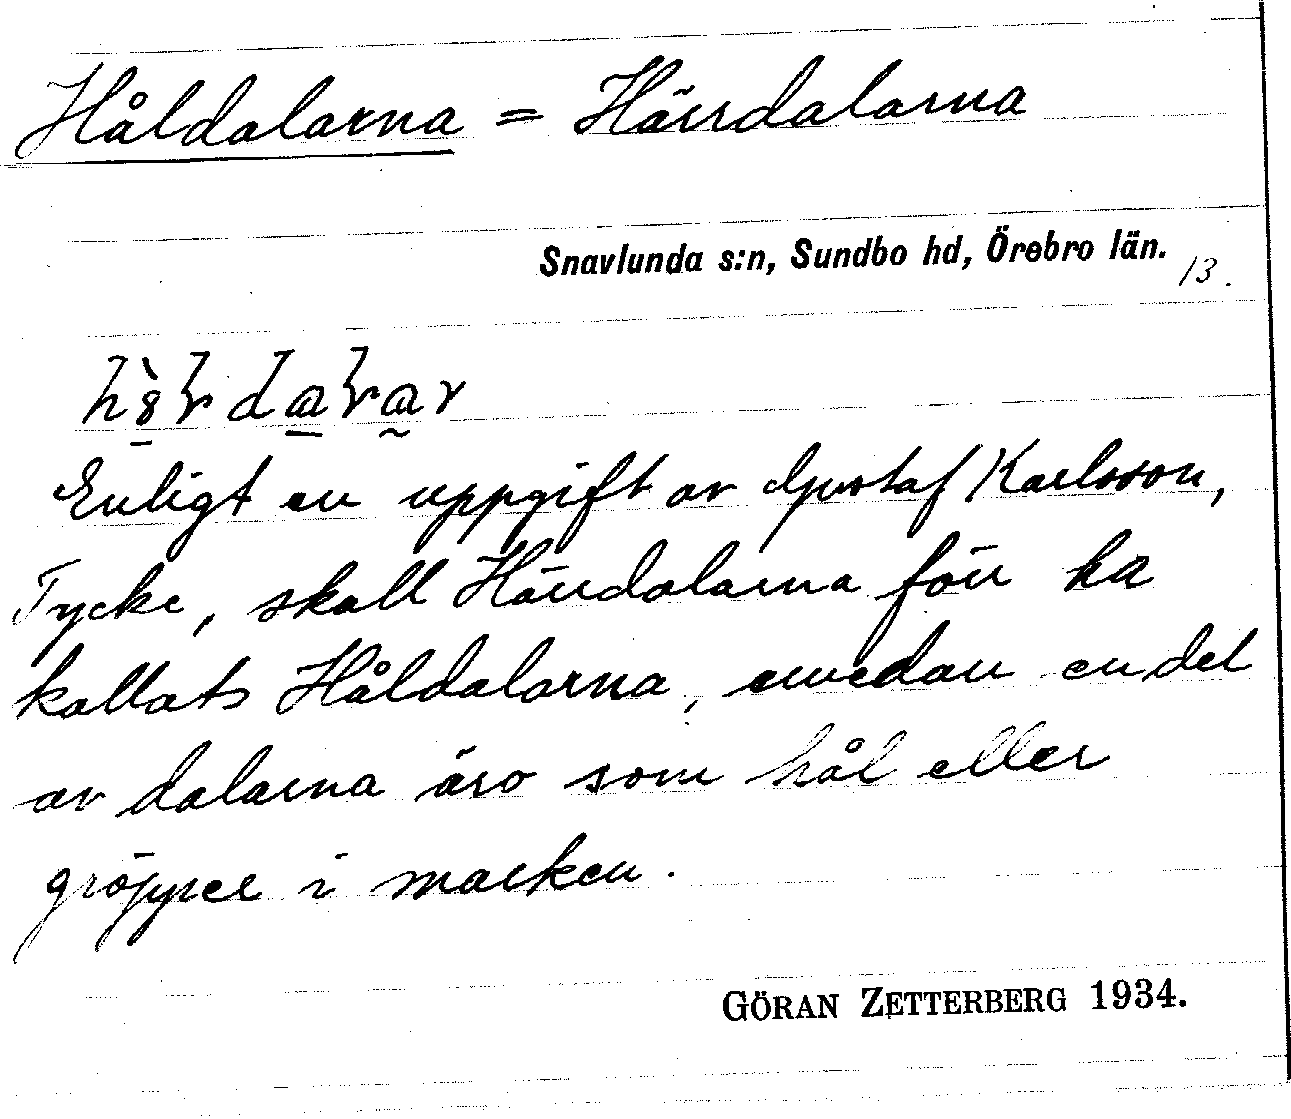 Håldalarna = Härrdalarna
Snavlunda s:n, Sundbo hd, Örebro län.
13.
Enligt en uppgift av Gustaf Karlsson,
Tycke, skall Härrdalarna förr ha
kallats Håldalarna, emedan en del
av dalarna äro som hål eller
gröpper i marken.
GÖRAN ZETTERBERG 1934.